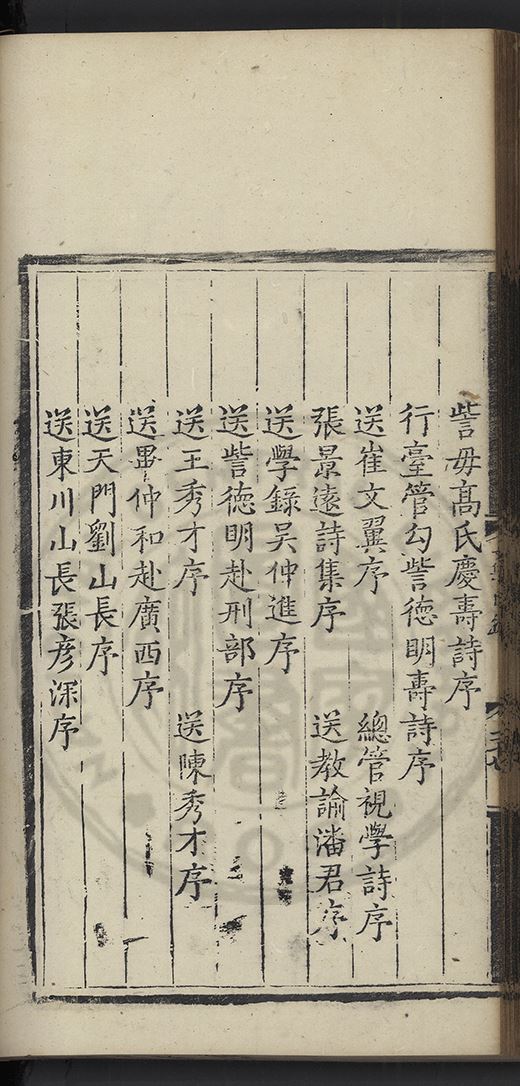 訾母高氏慶壽詩序
行臺管勾訾德明壽詩序
送崔文翼序　總管視學詩序
張景遠詩集序　送教諭潘君序
送學錄吴仲進序
送訾德明赴刑部序
送王秀才序　送陳秀才序
送畢仲和赴廣西序
送天門劉山長序
送東川山長張彦深序